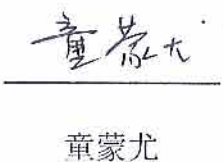 童蒙尤
童蒙尤